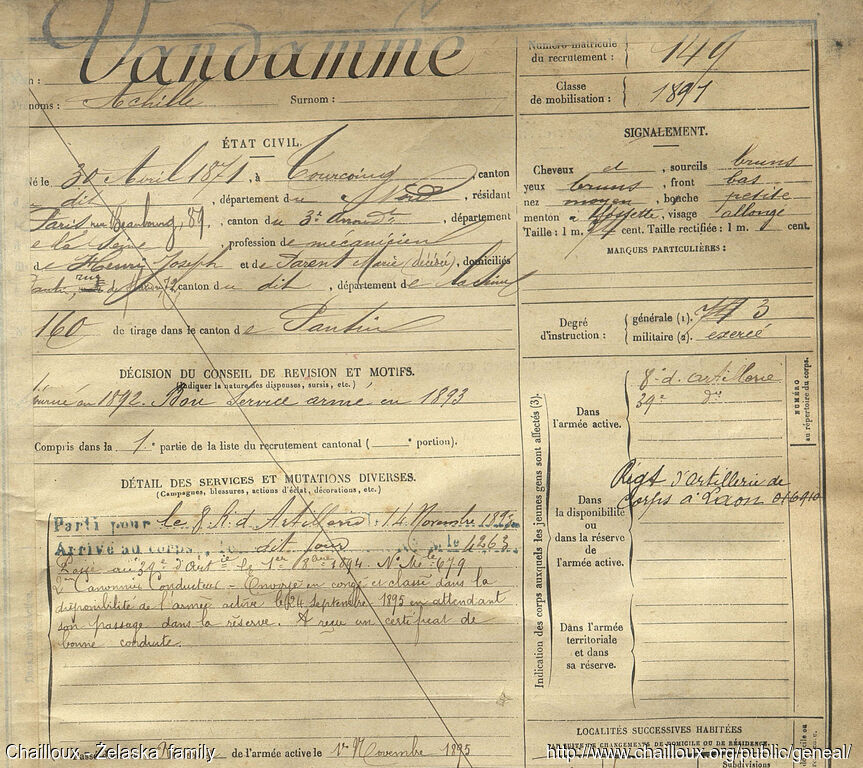 Vandamme
Numéro matricule
du recrutement : 149
Prénoms : Achille Surnom :
Classe
de mobilisation : 1891
ÉTAT CIVIL.
Né le 30 Avril 1871, à Tourcoing, canton
du dit, département du Nord, résidant
Paris rue Beaubourg, 89, canton du 3e Arrondt, département
de la Seine, profession de mecanicien
de Henri Joseph et de Parent Marie (décédée), domiciliés
canton du dit, département de la Seine
160 de tirage dans le canton de Pantin
SIGNALEMENT.
Cheveux et, sourcils bruns
yeux bruns, front bas
nez moyen, bouche petite
menton à fossette, visage allongé
Taille : 1 m. 74 cent. Taille rectifiée : 1 m. cent.
MARQUES PARTICULIÈRES :
Degré
d'instruction : générale (1). 3
militaire (2). exercé
DÉCISION DU CONSEIL DE REVISION ET MOTIFS.
(Indiquer la nature des dispenses, sursis, etc.)
1892. Bon service armé en 1893
Compris dans la 1e partie de la liste du recrutement cantonal ( e portion).
DÉTAIL DES SERVICES ET MUTATIONS DIVERSES.
(Campagnes, blessures, actions d'éclat, décorations, etc.)
Parti pour le 8 R. d'Artillerie, 14 Novembre
Arrivé au corps, le dit jour le 4263
Passé au 39e d'Artie le 1er 1894. No Mle 679
2me Canonnier Conducteur - Envoyé en congé et classé dans la
disponibilité de l'armée active le 24 Septembre 1895 en attendant
son passage dans la réserve. A reçu un certificat de
bonne conduite.
de l'armée active le 1er Novembre 1895
Indication des corps auxquels les jeunes gens sont affectés (3).
NUMÉRO
au répertoire du corps.
Dans
l'armée active.
8e d'artillerie
39e do
Dans
la disponibilité
ou
dans la réserve
de
l'armée active.
Régt d'Artillerie de
Corps à Laon 016910
Dans l'armée
territoriale
et dans
sa réserve.
LOCALITÉS SUCCESSIVES HABITÉES
PAR SUITE DE CHANGEMENTS DE DOMICILE OU DE RÉSIDENCE.
Subdivisions
Chailloux - Żelaska family
http://www.chailloux.org/public/geneal/